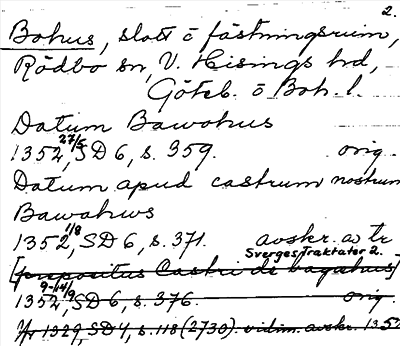 2.
Bohus, slott o fästningsruin,
Rödbo sn, V. Hisings hd,
Göteb. o Boh. l.
Datum Bawohus
1352 27/5, SD 6, s. 359. orig.
Datum apud castrum nostrum
Bawahws
1352 1/8, SD 6, s. 371. avskr. av tr
Sverges Traktater 2.
[prepositus Castri de bagahus]
1352 9-14/9, SD 6, s. 376. orig.
Yr 1329, SD 4, s. 118 (2730). vidim. avskr. 1352